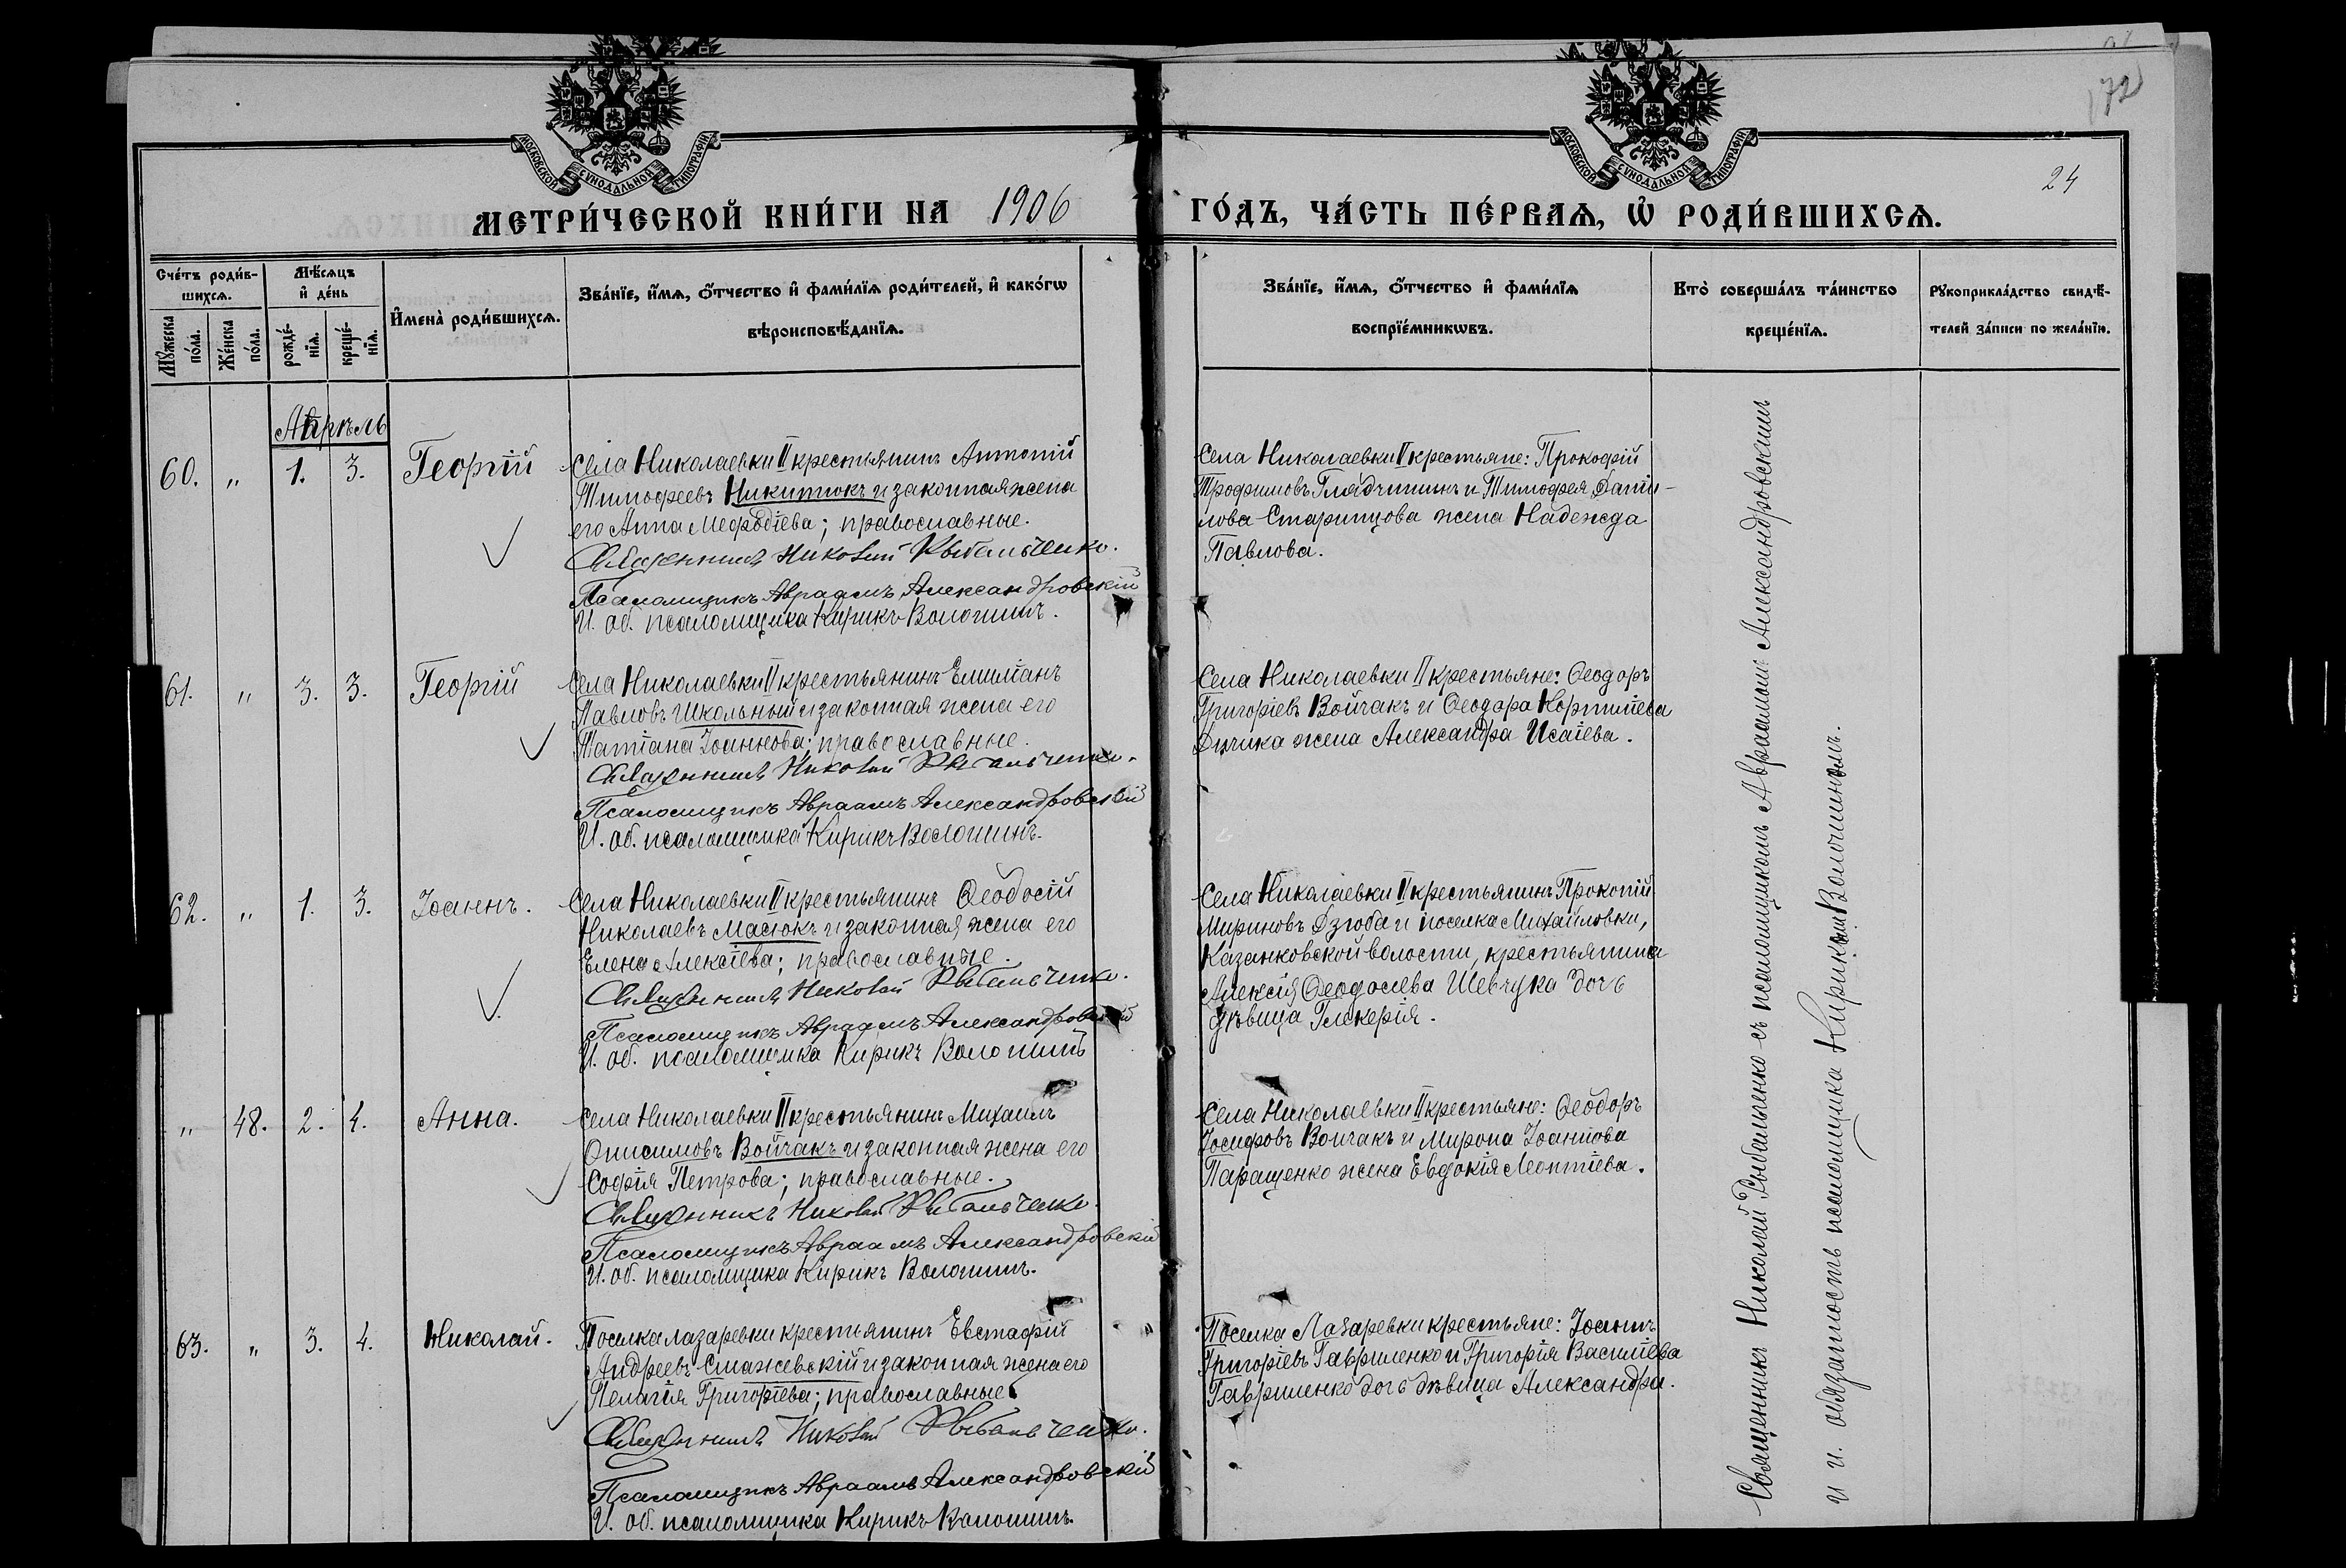 172
24
МОСКОВСКОЙ СѴНОДАЛЬНОЙ ТИПОГРАФІИ
МОСКОВСКОЙ СѴНОДАЛЬНОЙ ТИПОГРАФІИ
МЕТРИ́ЧЕСКОЙ КНИ́ГИ НА 1906 ГО́ДЪ, ЧА́СТЬ ПЕ́РВАѦ, Ѡ҆ РОДИ́ВШИХСѦ.
Сче́тъ роди́в-
шихсѧ.
Мѣ́сѧцъ
и҆ де́нь
Мꙋ́жеска
по́ла.
Же́нска
по́ла.
рожде́-
нїѧ.
креще́-
нїѧ.
И҆мена̀ роди́вшихсѧ.
Зва́нїе, и҆́мѧ, ѻ҆́тчество и҆ фами́лїѧ роди́телей, и҆ како́гѡ
вѣроисповѣ́данїѧ.
Зва́нїе, и҆́мѧ, ѻ҆́тчество и҆ фами́лїѧ
воспрїе́мникѡвъ.
Кто̀ соверша́лъ та́инство
креще́нїѧ.
Рꙋкоприкла́дство свидѣ́-
телей за́писи по жела́нїю.
Апрѣль
60. " 1. 3. Георгій
Села Николаевки II крестьянинъ Антоній
Тимофеевъ Никитюкъ и законная жена
его Анна Мефодіева; православные.
Священникъ Николай Рыбальченко.
Псаломщикъ Авраамъ Александровскій
И. об. псаломщика Кирикъ Волошинъ.
Села Николаевки II крестьяне: Прокофій
Трофимовъ Глядчишинъ и Тимофея Дани-
лова Старинцова жена Надежда
Павлова.
61. " 3. 3. Георгій
Села Николаевки II крестьянинъ Емиліанъ
Павловъ Школьный и законная жена его
Татіана Іоаннова; православные.
Священникъ Николай Рыбальченко.
Псаломщикъ Авраамъ Александровскій
И. об. псаломщика Кирикъ Волошинъ.
Села Николаевки II крестьяне: Ѳеодоръ
Григоріевъ Войчакъ и Ѳеодора Корниліева
жена Александра Исаіева.
62. " 1. 3. Іоаннъ.
Села Николаевки II крестьянинъ Ѳеодосій
Николаевъ Масюкъ и законная жена его
Елена Алексіева; православные.
Священникъ Николай Рыбальченко.
Псаломщикъ Авраамъ Александровскій
И. об. псаломщика Кирикъ Волошинъ
Села Николаевки II крестьянинъ Прокопій
Мироновъ Дзюба и поселка Михайловки,
Казанковской волости, крестьянина
Алексія Ѳеодосіева Шевчука дочь
дѣвица Гликерія.
" 48. 2. 4. Анна.
Села Николаевки II крестьянинъ Михаилъ
Онисимовъ Войчакъ и законная жена его
Софія Петрова; православные.
Священникъ Николай Рыбальченко.
Псаломщикъ Авраамъ Александровскій
И. об. псаломщика Кирикъ Волошинъ.
Села Николаевки II крестьяне: Ѳеодоръ
Іосифовъ Войчакъ и Мирона Іоаннова
Паращенко жена Евдокія Леонтіева.
63. " 3. 4. Николай.
Поселка Лазаревки крестьянинъ Евстафій
Андреевъ Смажевскій и законная жена его
Пелагія Григоріева; православные.
Священникъ Николай Рыбальченко.
Псаломщикъ Авраамъ Александровскій
И. об. псаломщика Кирикъ Волошинъ.
Поселка Лазаревки крестьяне: Іоаннъ
Григоріевъ Гавриленко и Григорія Василіева
Гавриленко дочь дѣвица Александра.
Священникъ Николай Рыбальченко съ псаломщикомъ Авраамомъ Александровскимъ
и и. обязанность псаломщика Кирикомъ Волошинымъ.